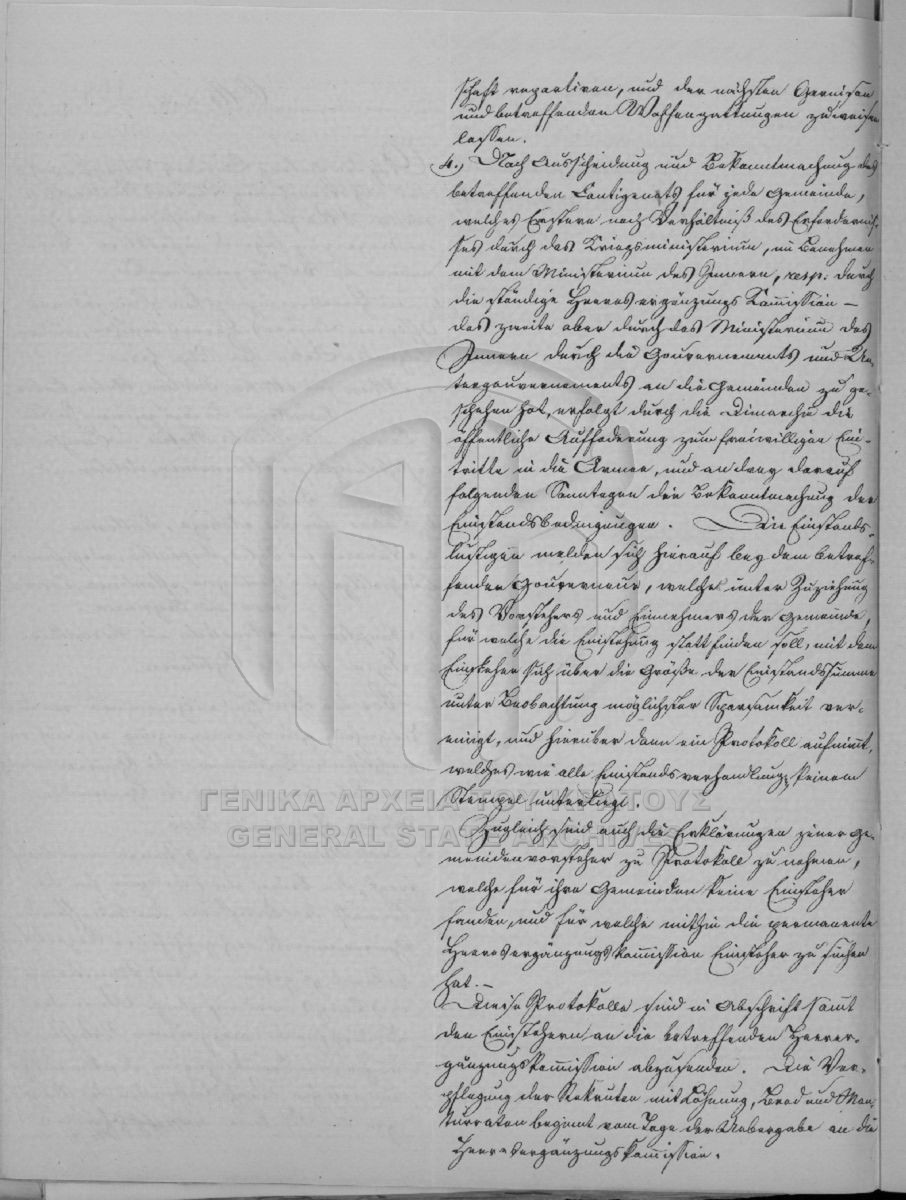 schaft repartiren, und der nächsten Garnison
und betreffenden Waffengattungen zuweisen
lassen.
4.) Nach Ausscheidung und Bekanntmachung des
betreffenden Contigents für jede Gemeinde,
welches Erstere nach Verhältniß des Erfordernis-
ses durch das Kriegsministerium, im Benehmen
mit dem Ministerium des Innern, resp: durch
die ständige Heeresergänzungs Kom̄ission –
das zweite aber durch das Ministerium des
Innern durch die Gouvernements und Un-
tergouvernements an die Gemeinden zu ge-
schehen hat, erfolgt durch die Dimarchie die
öffentliche Aufforderung zum freiwilligen Ein-
tritte in die Armee, und an drey darauf
folgenden Sonntagen die Bekanntmachung der
Einstandsbedingungen. Die Einstands-
lustigen melden sich hierauf bey dem betref-
fenden Gouverneur, welcher unter Zuziehung
des Vorstehers und Einnehmers der Gemeinde,
für welche die Einstehung statt finden soll, mit dem
Einsteher sich über die Größe der Einstandssumme
unter Beobachtung möglichster Sparsamkeit ver-
einigt, und hierüber dann ein Protokoll aufnim̄t,
welches wie alle Einstandsverhandlung: keinem
Stempel unterliegt.
Zugleich sind auch die Erklärungen jener Ge-
meindenvorsteher zu Protokoll zu nehmen,
welche für ihre Gemeinden keine Einsteher
fanden, und für welche mithin die permanente
Heeresergänzungskom̄ission Einsteher zu suchen
hat. –
Diese Protokolle sind in Abschrift sam̄t
den Einstehern an die betreffenden Heerer-
gänzungskom̄ission abzusenden. Die Ver-
pflegung der Rekruten mit Löhnung, Brod und Mon-
turraten begint vom Tage der Uebergabe an die
Heeresergänzungskom̄ission.
ΓΕΝΙΚΑ ΑΡΧΕΙΑ ΤΟΥ ΚΡΑΤΟΥΣ
GENERAL STATE ARCHIVES